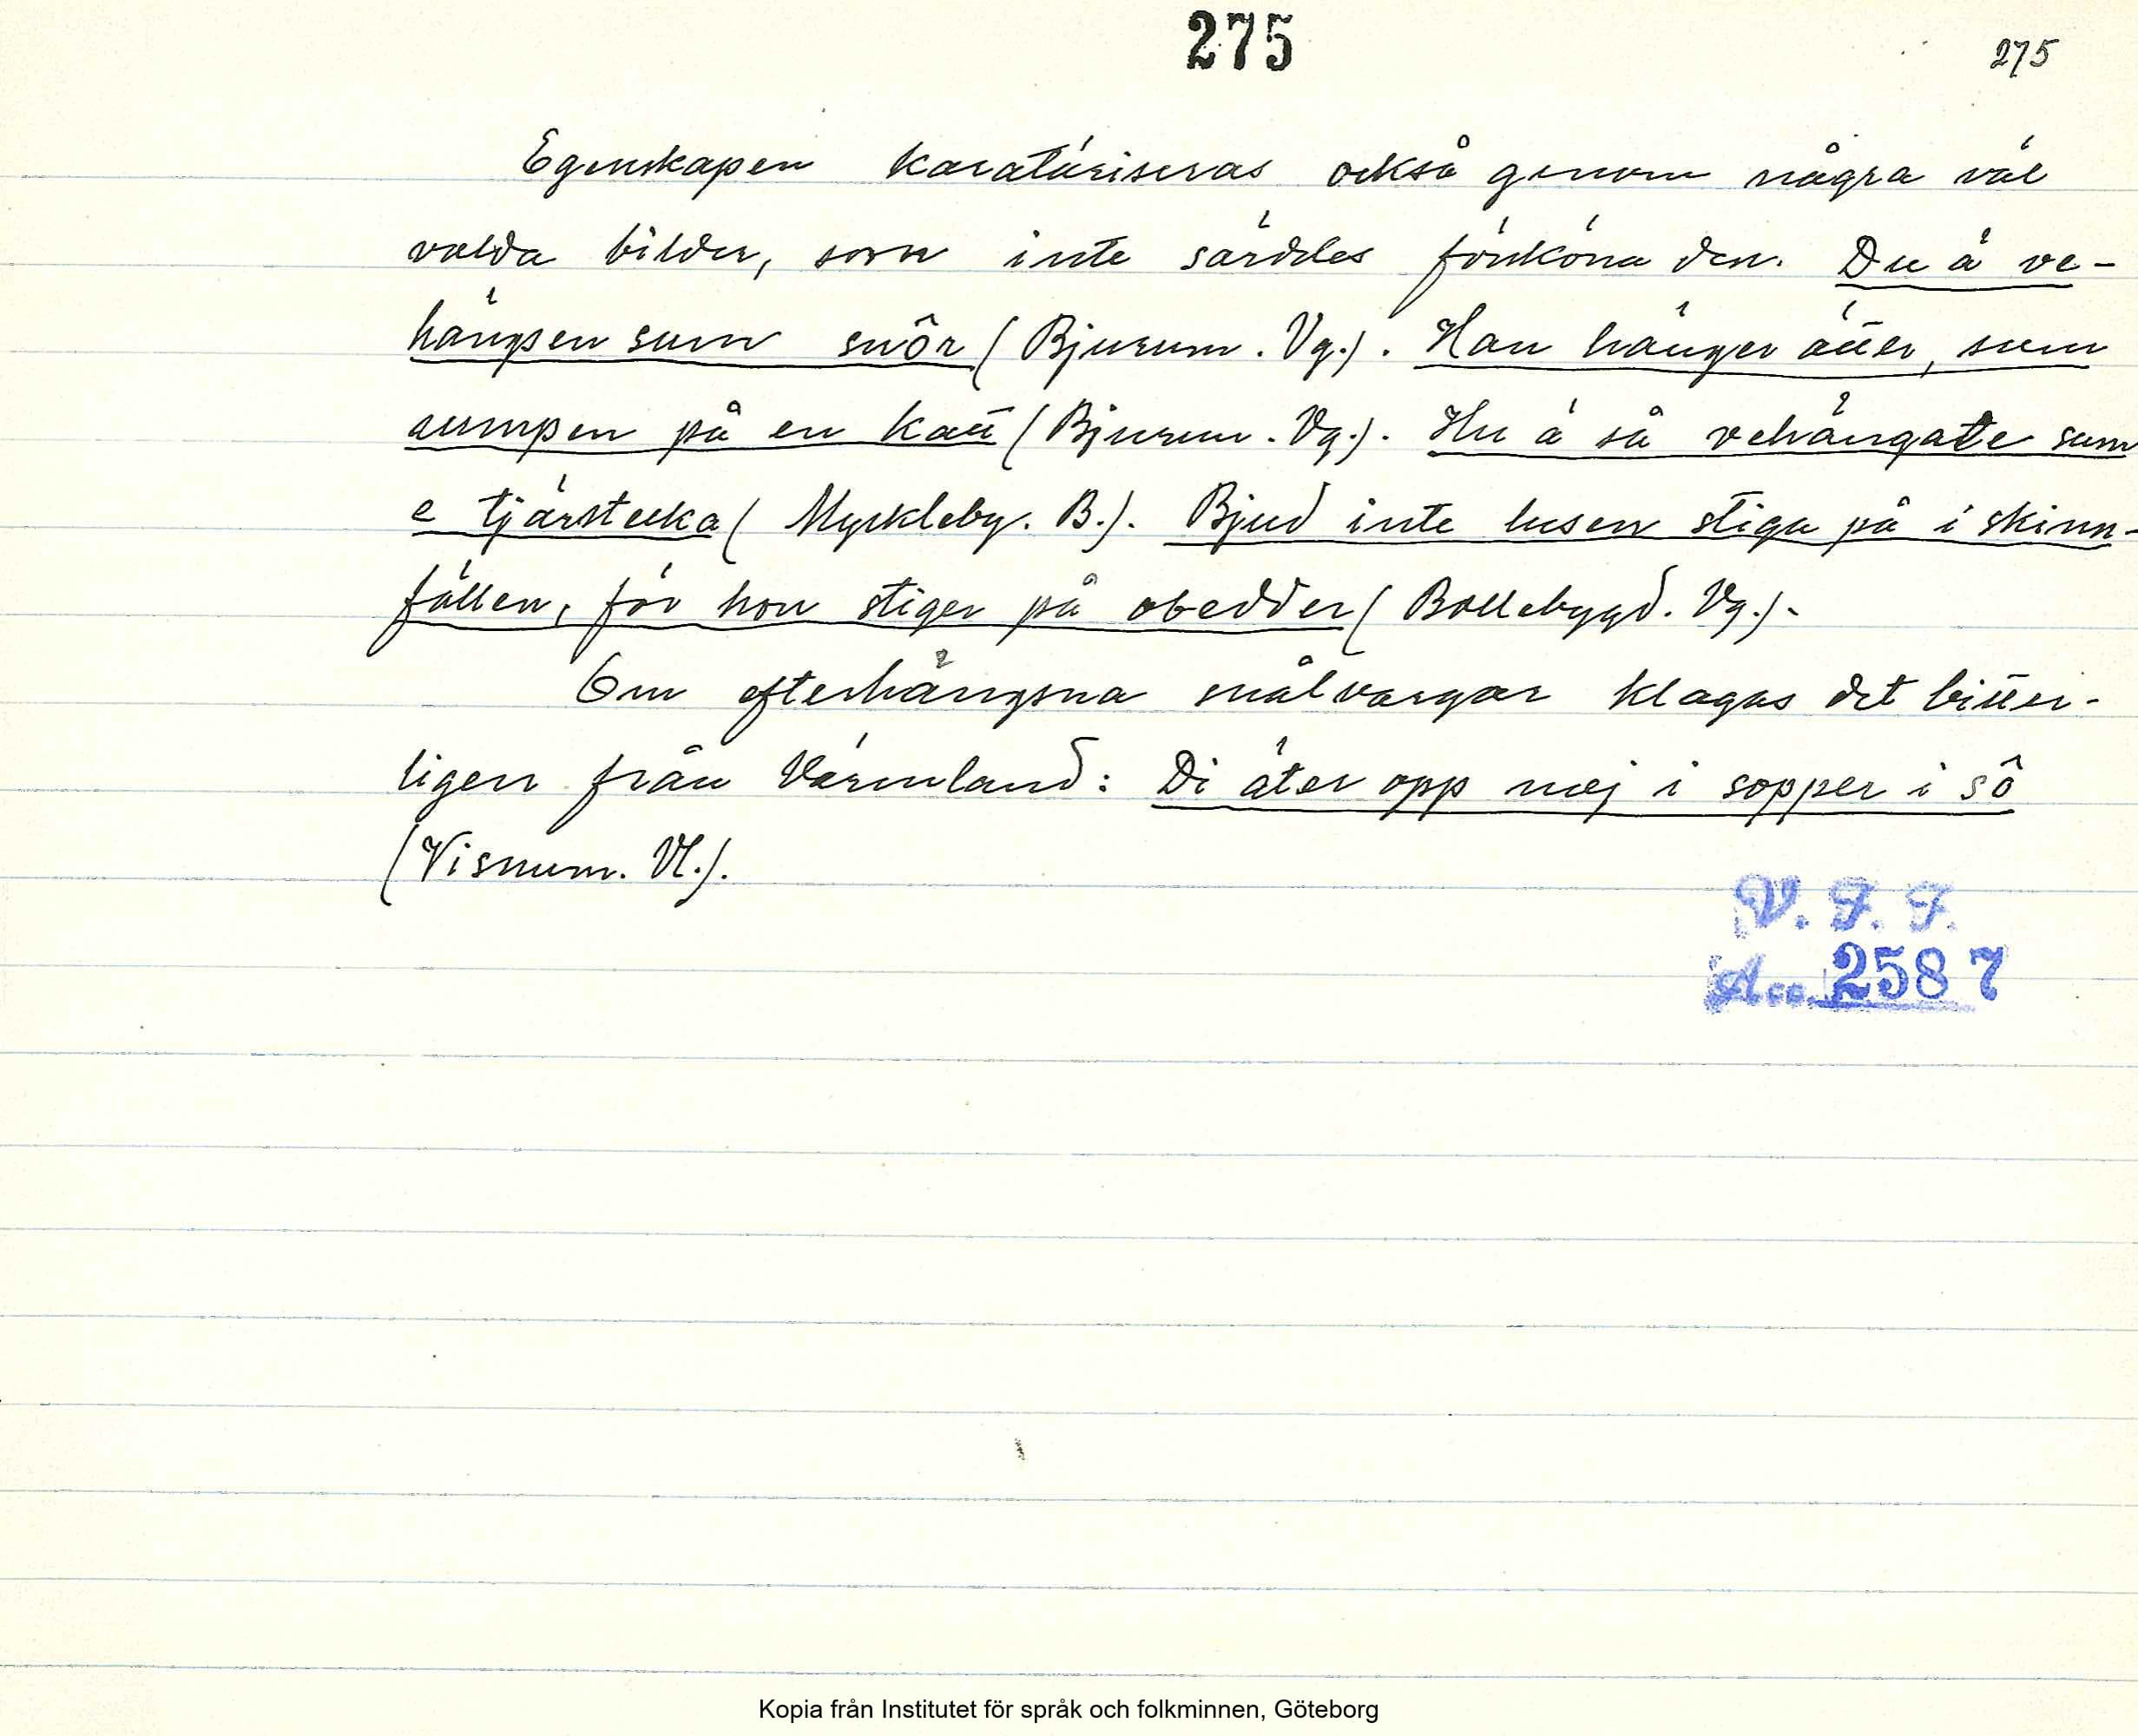 275
275
Egenskapen karatäriseras också genom några väl
valda bilder, som inte särdeles försköna den. Du ä ve-
hängsen sum snôr (Bjurum. Vg.). Han hänger ätter, sum
rumpen på en katt (Bjurum. Vg.). Hu ä så vehängate sum
e tjärstecka (Myckleby. B.). Bjud inte lusen stiga på i skinn-
fällen, för hon stiger på obedder (Bollebygd. Vg.).
Om efterhängsna snålvargar klagas det bitter-
ligen från Värmland: Di äter opp mej i sopper i sô
(Visnum. Vl.).
V. F. F.
Acc. 2587
Kopia från Institutet för språk och folkminnen, Göteborg